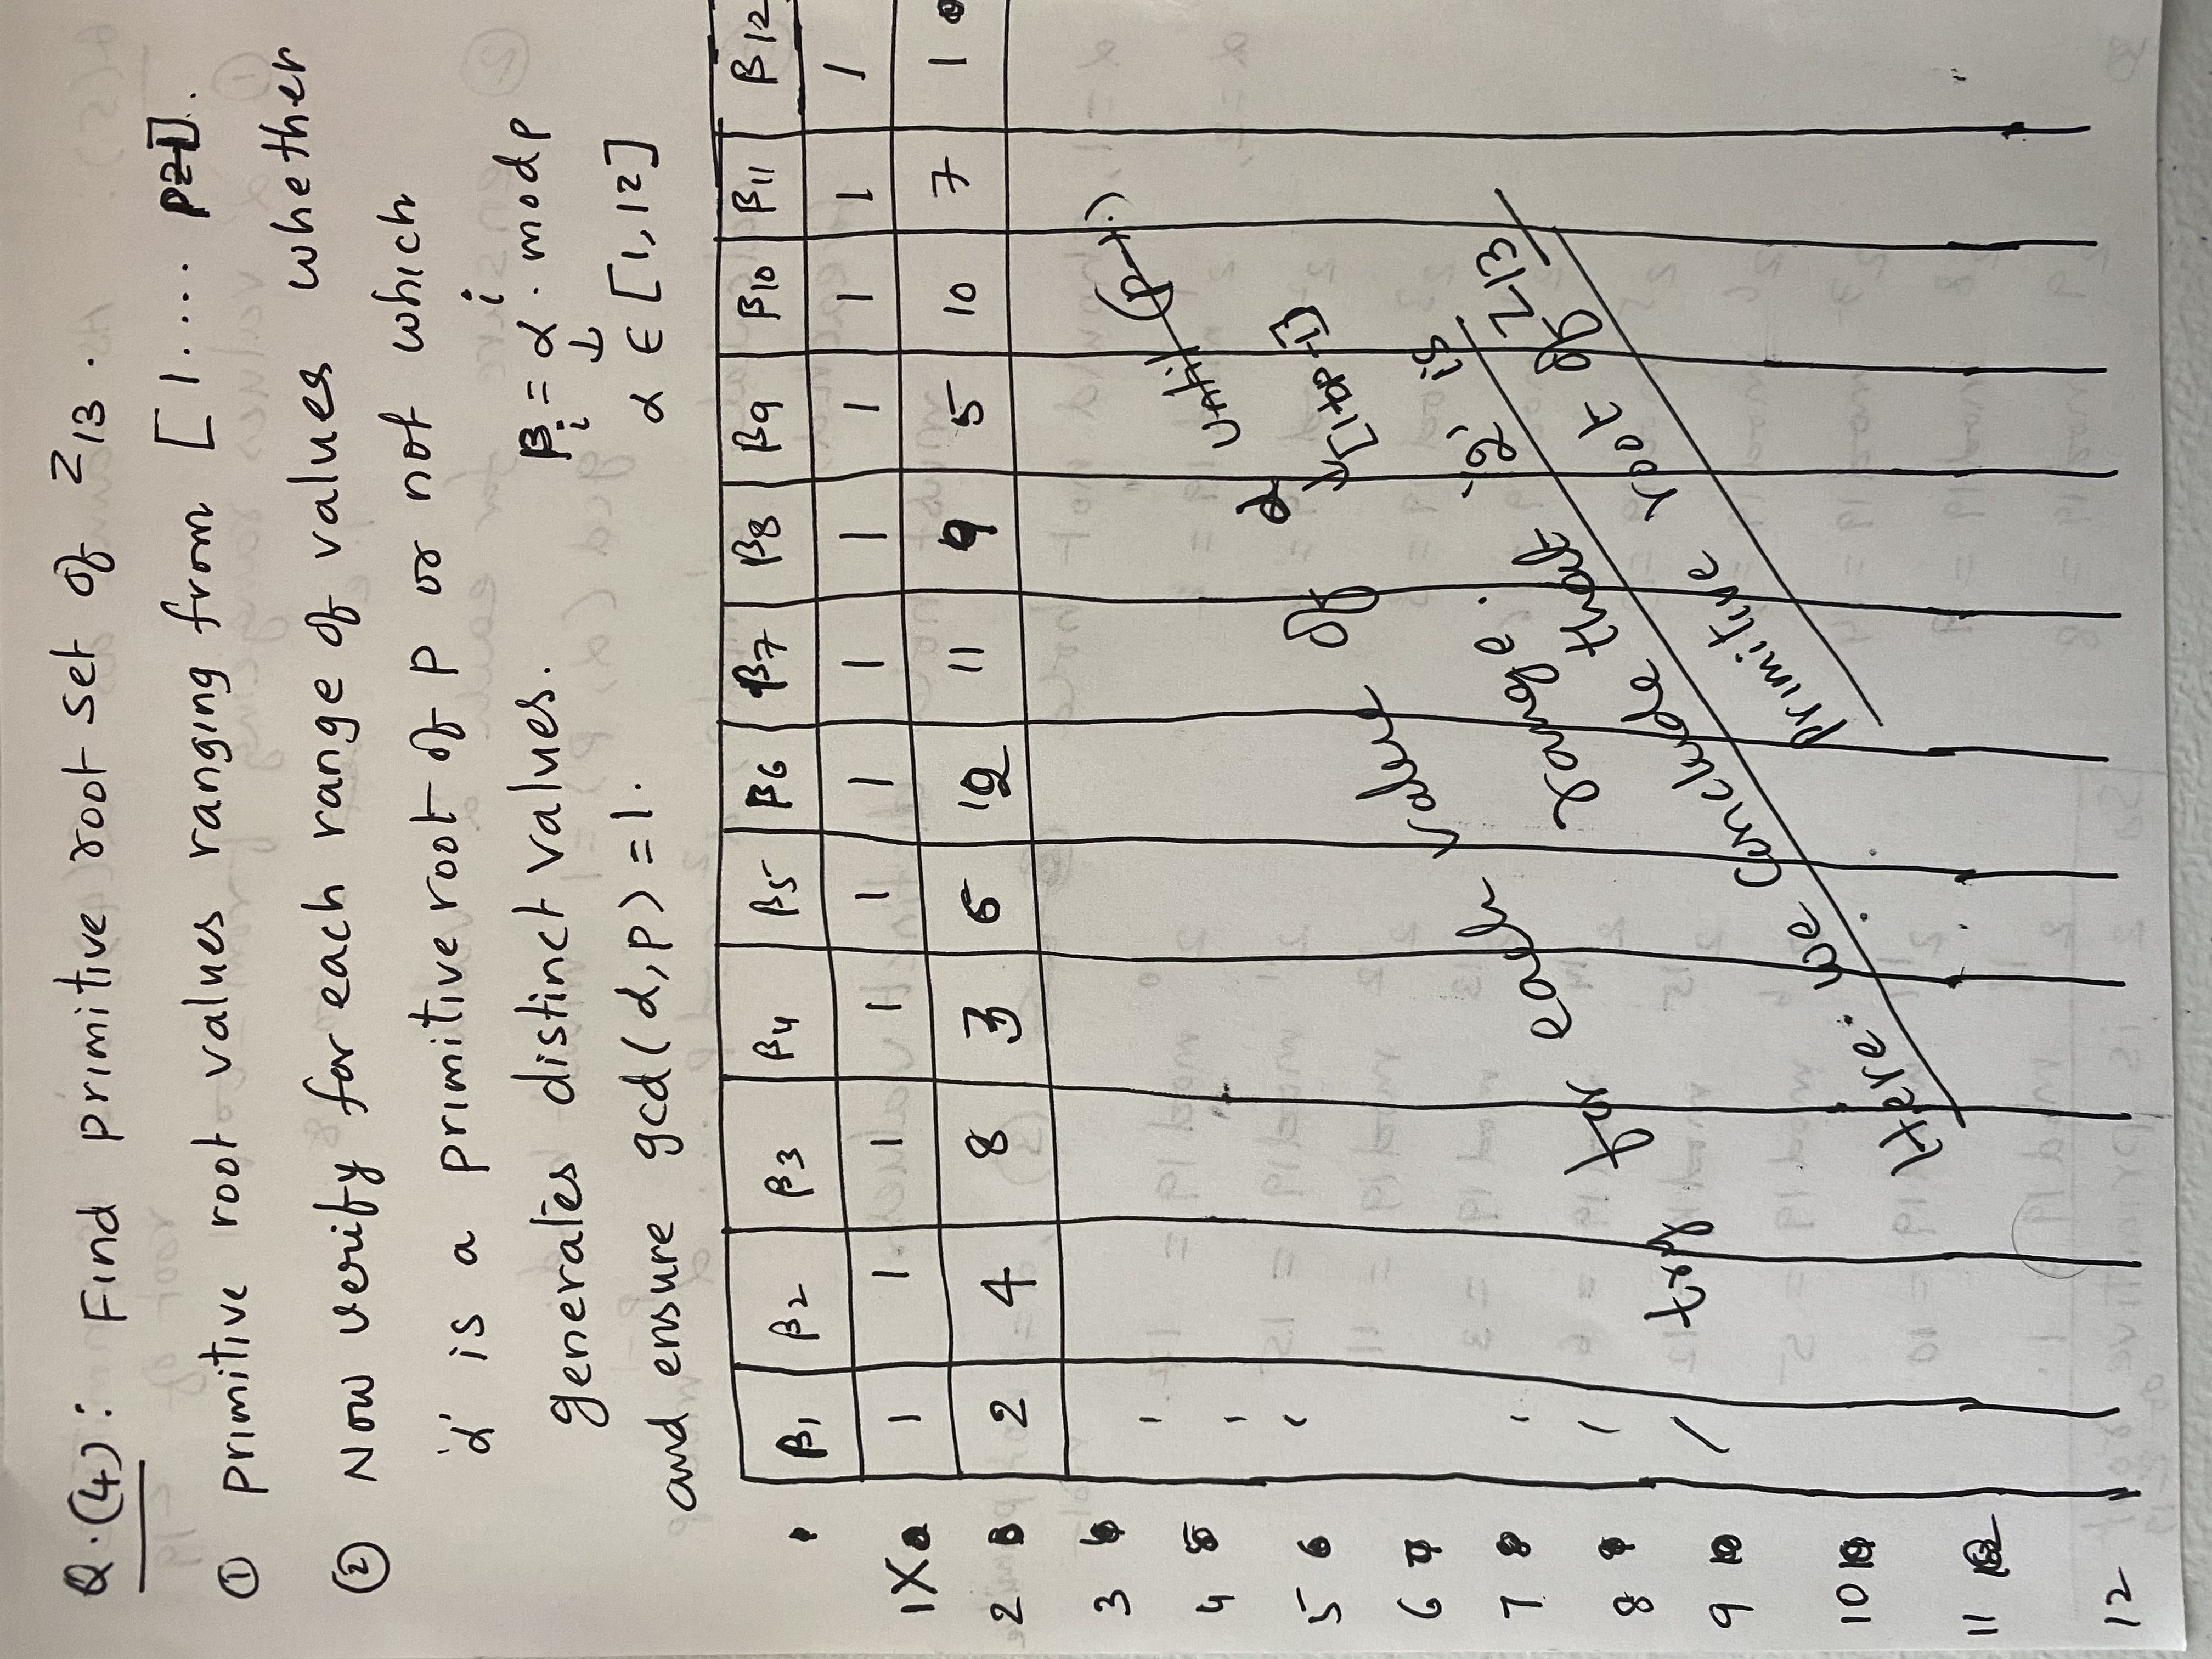 Q.(4): Find primitive root set of Z13.
① primitive root values ranging from [1.... p-1].
② Now verify for each range of values whether
'α' is a primitive root of p or not which
generates distinct values. βi = α^i . mod p
↓
and ensure gcd(α,p) = 1. α ∈ [1,12]
β1 β2 β3 β4 β5 β6 β7 β8 β9 β10 β11 β12
1X 1 1 1 1 1 1 1 1 1 1 1 1
2 2 4 8 3 6 12 11 9 5 10 7 1
3
4
5
6
7
8
9
10
11
12
try for each value of α until (p-1.)
↓
[1 to p-1]
range.
Here we conclude that '2' is
primitive root of Z13